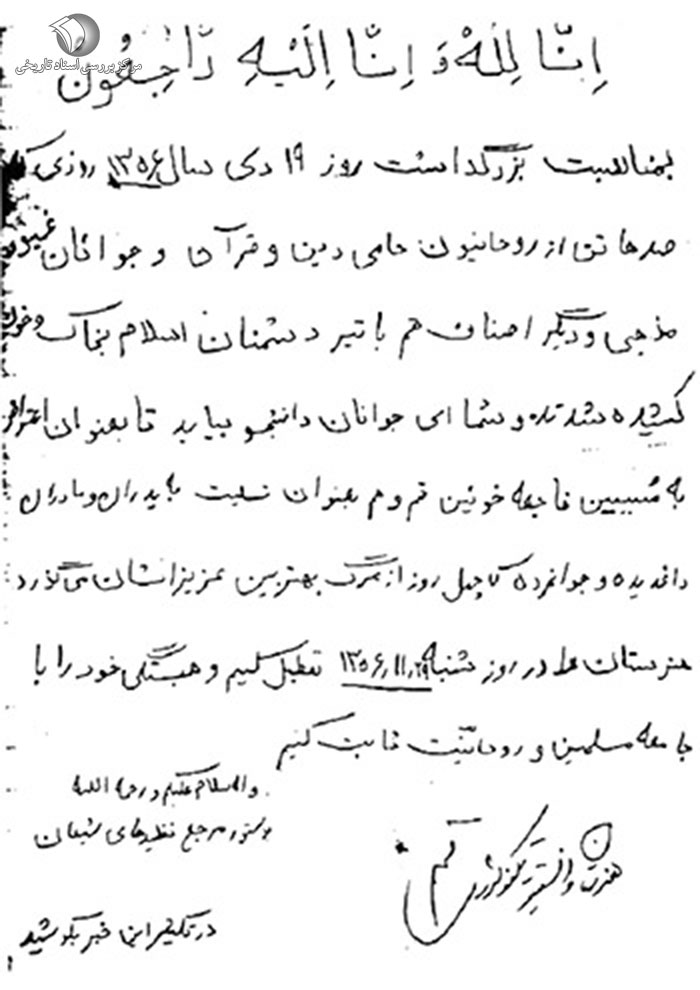 مرکز بررسی اسناد تاریخی
اِنّا لِلّهْ وَ اِنّا اِلَیْهِ رَّاجِعُون
بمناسبت بزرگداشت روز ۱۹ دی سال ۱۳۵۶ روزی که
صدها تن از روحانیون حامی دین و قرآن و جوانان غیور
مذهبی و دیگر اصناف هم با تیر دشمنان اسلام بخاک و خون
کشیده شدند و شما ای جوانان دانشجو بیاید تا بعنوان اعتراض
به مُسببین فاجعه خونین قم و هم بعنوان نسبت به پدران و مادران
داغدیده و جوانمرده که چهل روز از مرگ بهترین عزیزانشان می‌گذرد
هنرستان ها در روز شنبه ۱۳۵۶,۱۱,۲۹ تعطیل کنیم و همبستگی خود را با
جامعه مسلمین و روحانیّت ثابت کنیم
والسلام علیکم و رحمه الله
بدستور مرجع شیعان
هنرستان و انستیتو تکنولوژی قم
در تکثیر این خبر بکوشید